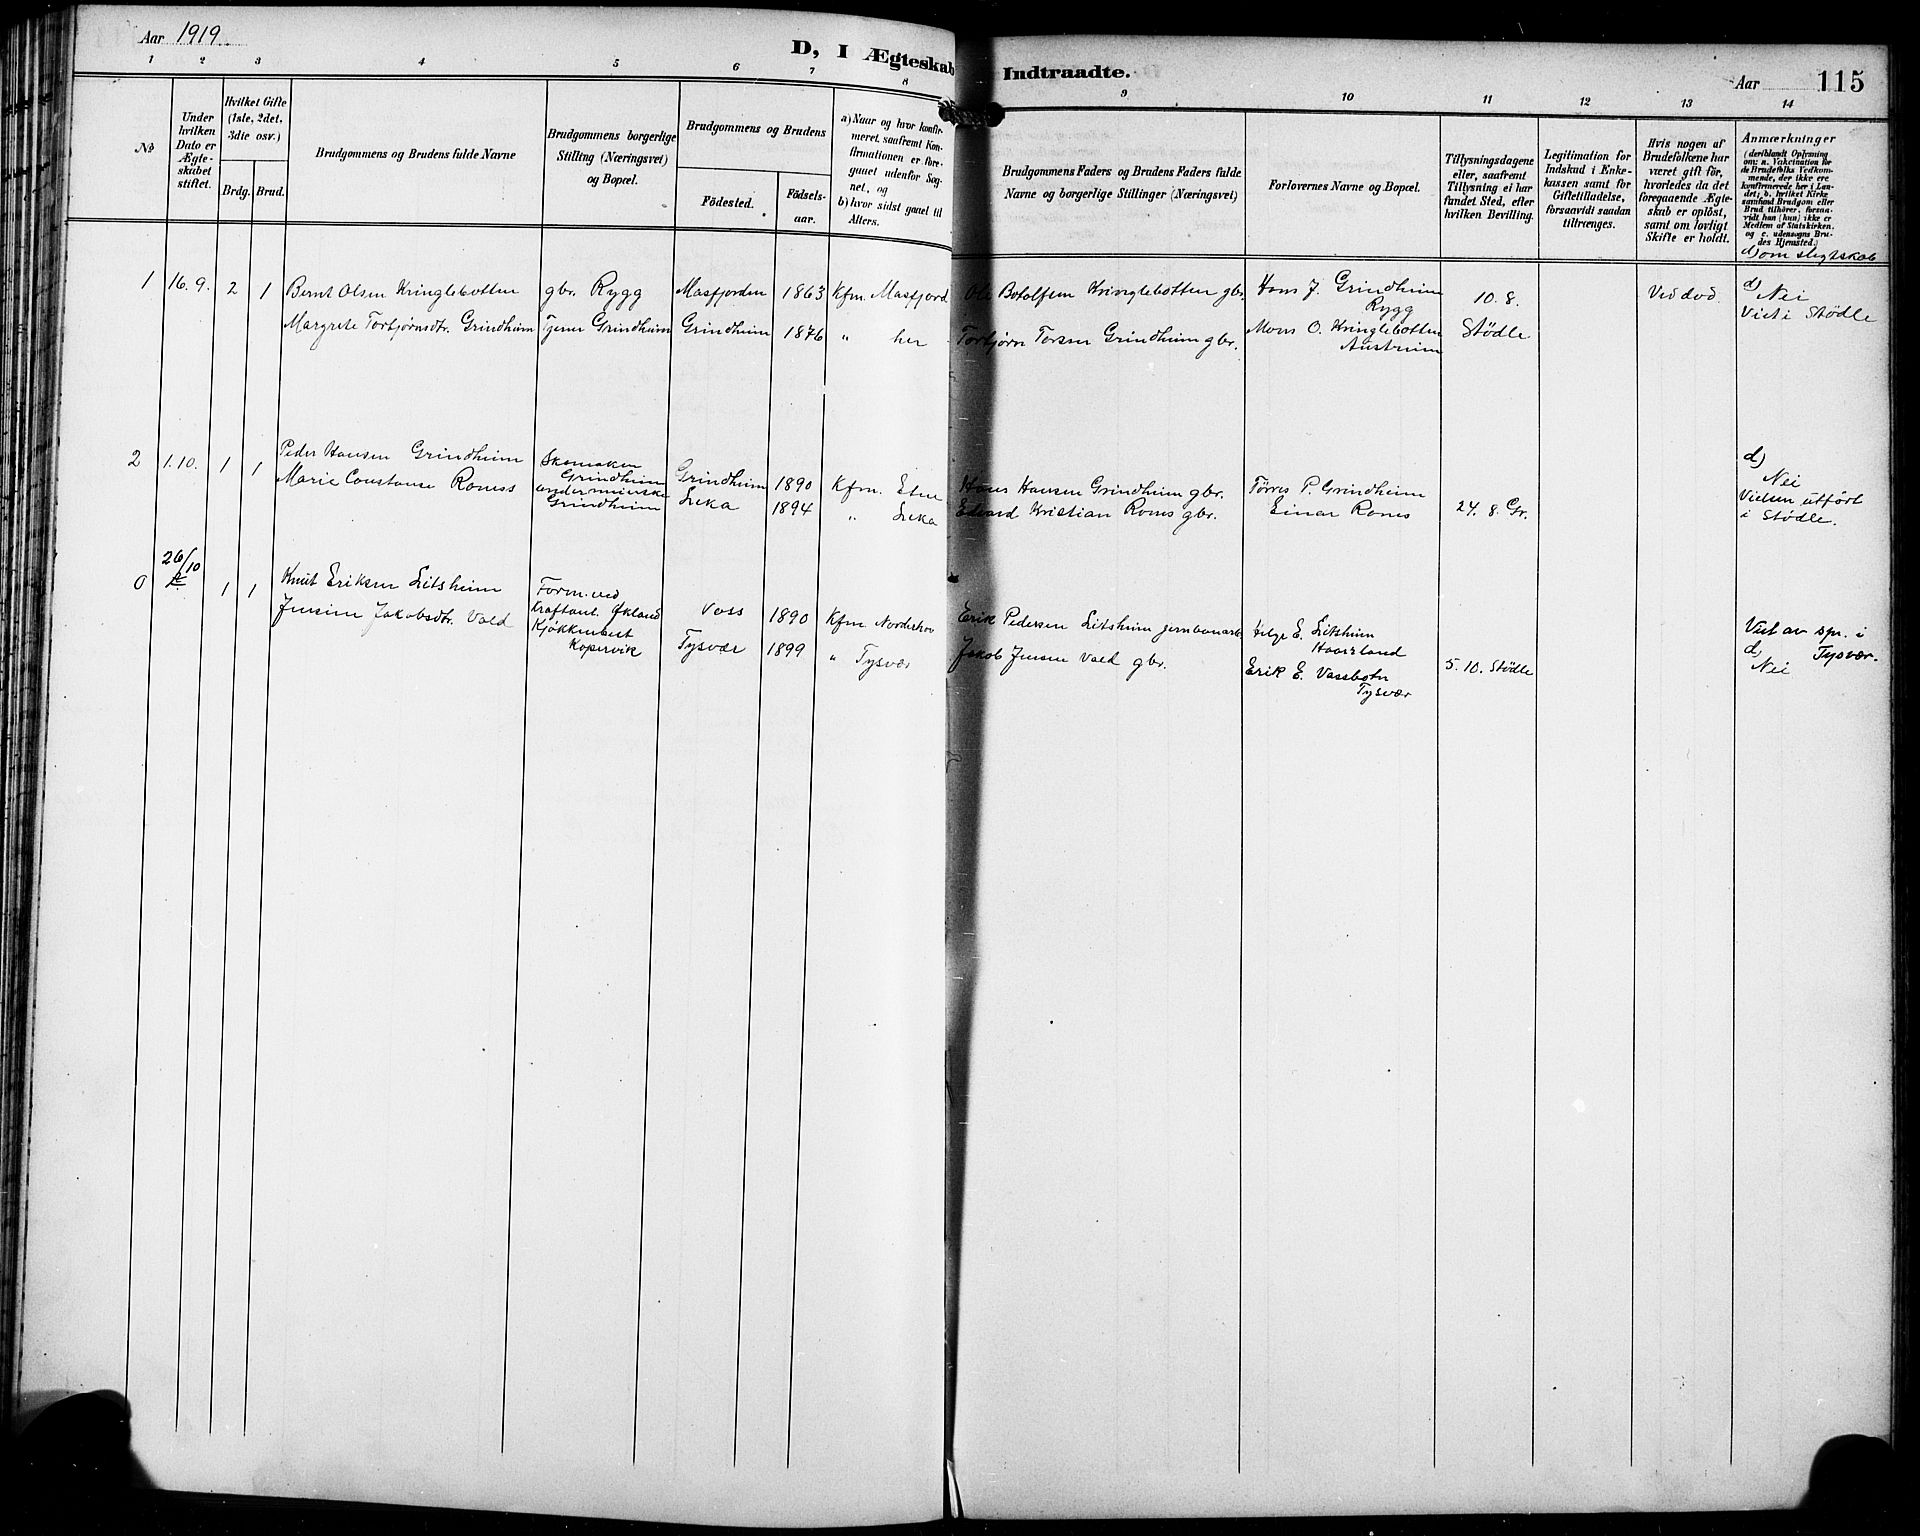 Aar 1919
D, I Ægteskab Indtraadte.
Aar 115
1 2 3 4 5 6 7 8 9 10 11 12 13 14
No
Under hvilken Dato er Ægteskabet stiftet.
Hvilket Gifte (1ste, 2det, 3die osv.)
Brdg. Brud.
Brudgommens og Brudens fulde Navne
Brudgommens borgerlige Stilling (Næringsvei) og Bopæl.
Brudgommens og Brudens
Födested. Födselsaar.
a) Naar og hvor konfirmeret, saafremt Konfirmationen er foregaaet udenfor Sognet, og
b) hvor sidst gaaet til Alters.
Brudgommens Faders og Brudens Faders fulde Navne og borgerlige Stillinger (Næringsvei)
Forlovernes Navne og Bopæl.
Tillysningsdagene eller, saafremt Tillysning ei har fundet Sted, efter hvilken Bevilling.
Legitimation for Indskud i Enkekassen samt for Giftetilladelse, forsaavidt saadan tiltrænges.
Hvis nogen af Brudefolkene har været gift för, hvorledes da det foregaaende Ægteskab er oplöst, samt om lovligt Skifte er holdt.
Anmærkninger
(deriblandt Oplysning om: a. Vakcination for de Brudefolks Vedkommende, der ikke ere konfirmerede her i Landet; b. hvilket Kirkesamfund Brudgom eller Brud tilhörer, forsaavidt han (hun) ikke er Medlem af Statskirken, og c. udensogns Brudes Hjemsted.)
d) om slegtskab
1 16. 9. 2 1 Bernt Olsen Kringlebotten gbr. Rygg Masfjorden 1863 Kfm. Masfjord Ole Botolfsen Kringlebotten gbr. Hans J. Grindheim Rygg 10. 8. Ved död. d) Nei
Margrete Torbjørnsdtr. Grindheim Tjener Grindheim Grindheim 1876 " her Torbjørn Torsen Grindheim gbr. Mons O. Kringlebotten Austrheim Stödle Viet i Stödle
2 1. 10. 1 1 Peder Hansen Grindheim Skomaker Grindheim Grindheim 1890 Kfm. Etne Hans Hansen Grindheim gbr. Tørres P. Grindheim d) Nei
Marie Constanse Roness Grindheim Leka 1894 " Leka Edvard Kristian Rones gbr. Einar Rones 24. 8. Gr. Vielsen utført i Stödle.
0 26/10 1 1 Knut Eriksen Litsheim Form. ved Kraftanl. Økland Voss 1890 Kfm. Norderhov Erik Pedersen Litsheim jernbanearb. Helge E. Litsheim Viet av spr. i Tysvær.
Jensine Jakobsdtr. Vald Kopervik Tysvær 1899 " Tysvær Jakob Jensen Vald gbr. Erik E. Vassbotn Tysvær 5. 10. Stödle d) Nei